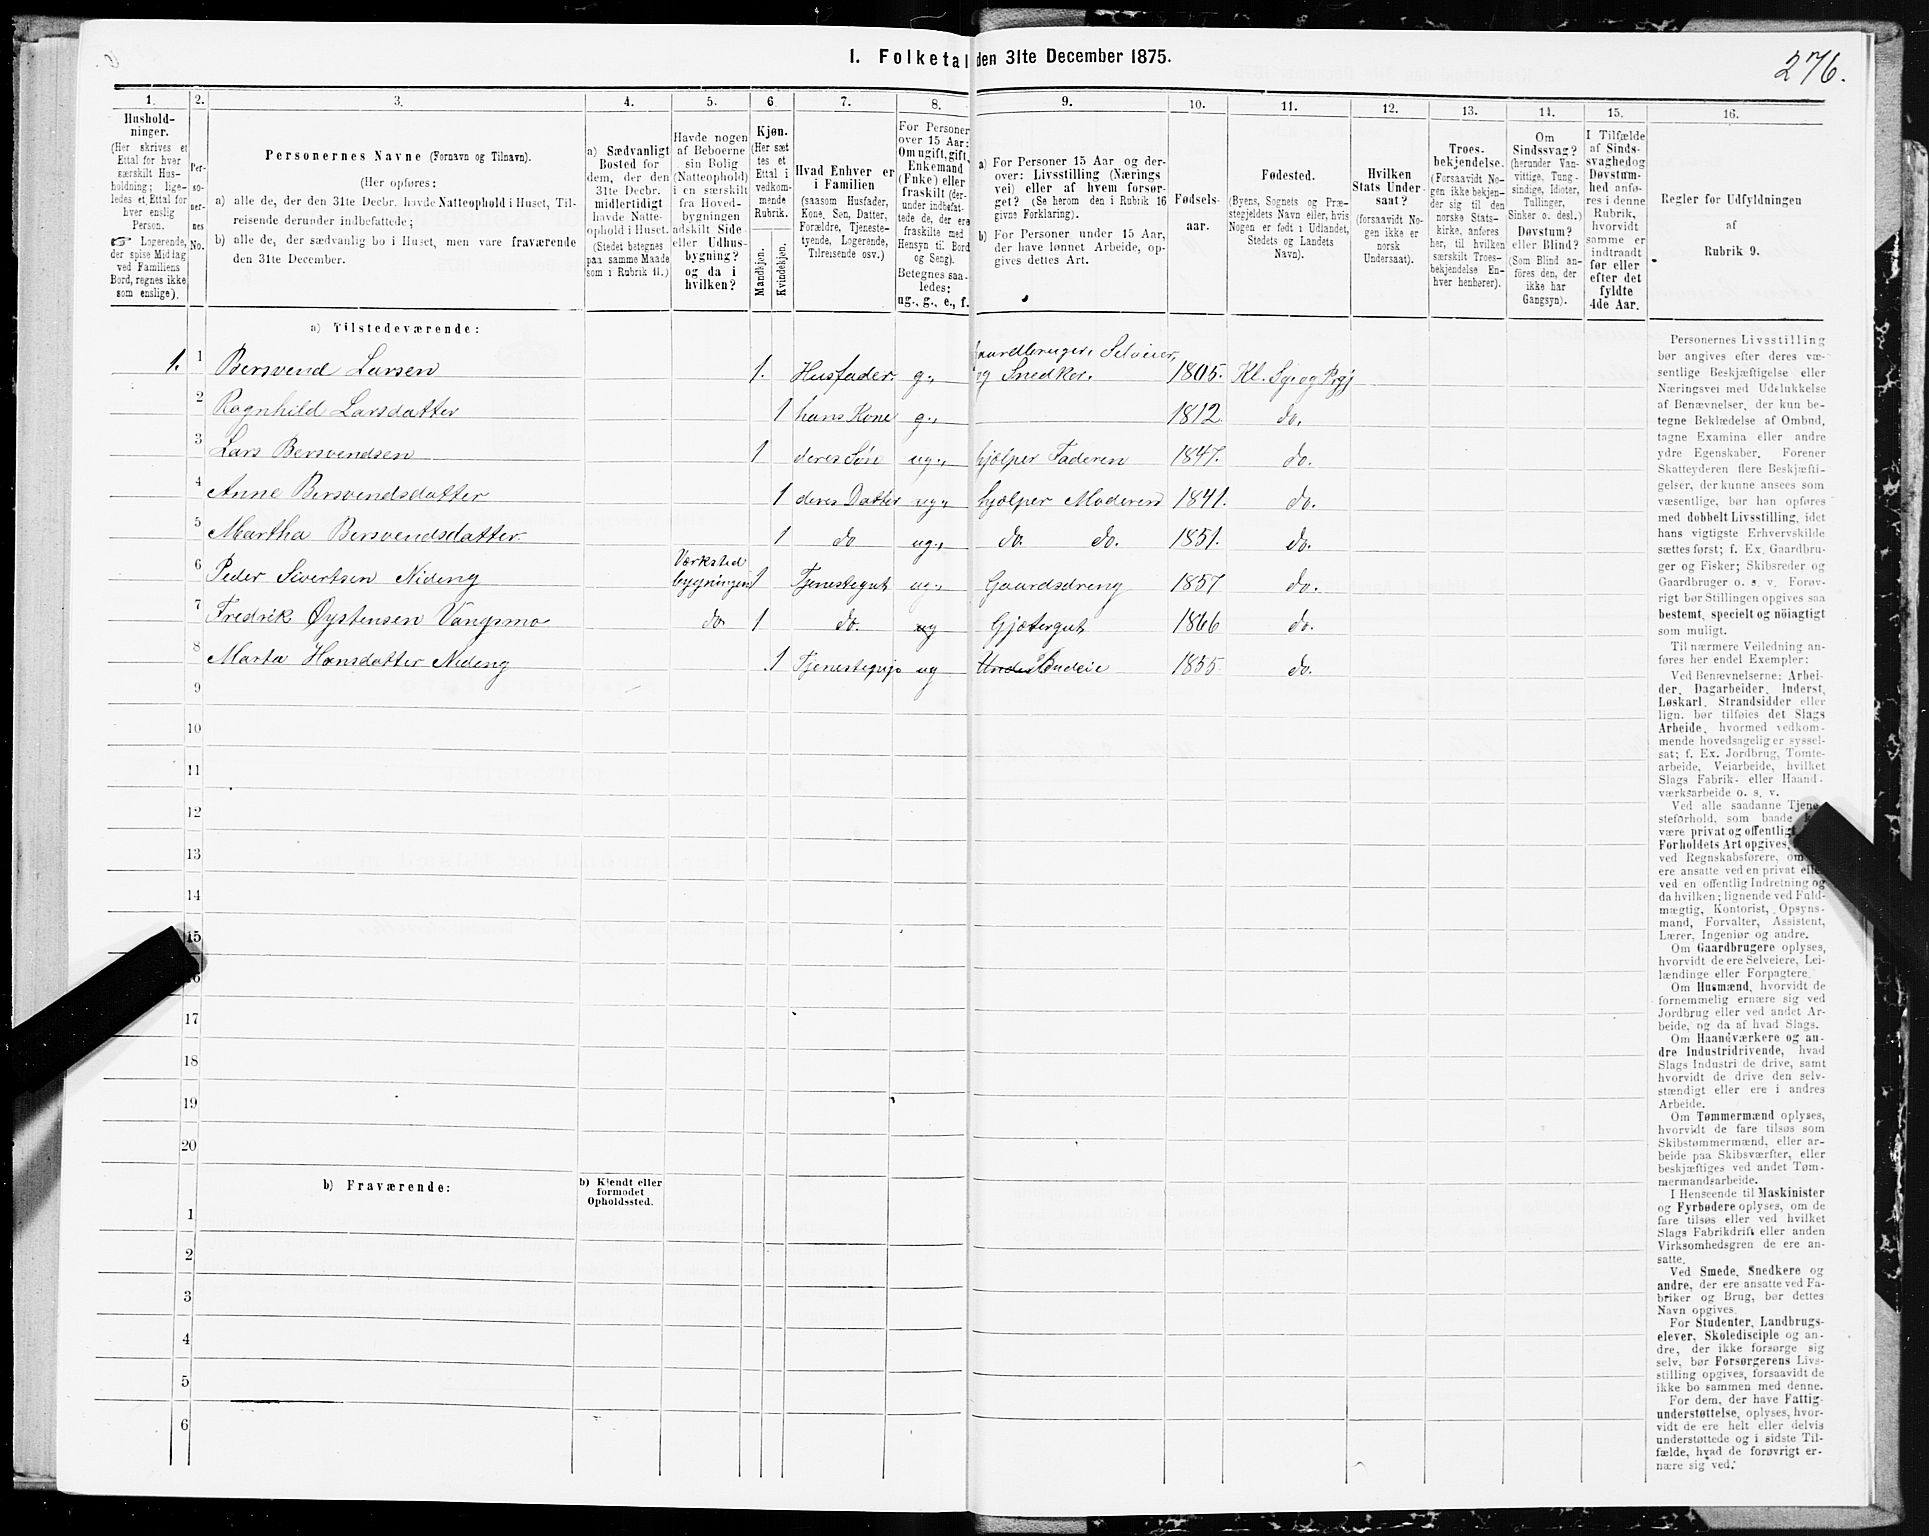 I. Folketal den 31te December 1875.
276.
1.
Hushold-
ninger.
(Her skrives et
Ettal for hver
særskilt Hus-
holdning; lige-
ledes et Ettal for
hver enslig
Person.
☞ Logerende,
der spise Middag
ved Familiens
Bord, regnes ikke
som enslige).
2.
Per-
so-
ner-
nes
No.
3.
Personernes Navne (Fornavn og Tilnavn).
(Her opføres:
a) alle de, der den 31te Decbr. havde Natteophold i Huset, Til-
reisende derunder indbefattede;
b) alle de, der sædvanlig bo i Huset, men vare fraværende
den 31te December.
4.
a) Sædvanligt
Bosted for
dem, der den
31te Decbr.
midlertidigt
havde Natte-
ophold i Huset.
(Stedet betegnes
paa samme Maade
som i Rubrik 11.)
5.
Havde nogen
af Beboerne
sin Bolig
(Natteophold)
i en særskilt
fra Hoved-
bygningen
adskilt Side-
eller Udhus-
bygning?
og da i
hvilken?
6.
Kjøn.
(Her sæt
tes et
Ettal i
vedkom-
mende
Rubrik.
Mandkjøn.
Kvindekjøn.
7.
Hvad Enhver er
i Familien
(saasom Husfader,
Kone, Søn, Datter,
Forældre, Tjeneste-
tyende, Logerende,
Tilreisende osv.)
8.
For Personer
over 15 Aar:
Om ugift, gift,
Enkemand
(Enke) eller
fraskilt (der-
under indbefat-
tede de, der ere
fraskilte med
Hensyn til Bord
og Seng).
Betegnes saa-
ledes:
ug., g., e., f.
9.
a) For Personer 15 Aar og der-
over: Livsstilling (Nærings
vei) eller af hvem forsør-
get? (Se herom den i Rubrik 16
givne Forklaring).
b) For Personer under 15 Aar,
der have lønnet Arbeide, op-
gives dettes Art.
10.
Fødsels-
aar.
11.
Fødested.
(Byens, Sognets og Præ-
stegjeldets Navn eller, hvis
Nogen er født i Udlandet,
Stedets og Landets
Navn).
12.
Hvilken
Stats Under-
saat?
(forsaavidt No-
gen ikke er
norsk
Undersaat).
13.
Troes-
bekjendelse.
(Forsaavidt No-
gen ikke bekjen-
der sig til den
norske Stats-
kirke, anføres
her, til hvilken
særskilt Troes-
bekjendelse En-
hver henhører).
14.
Om
Sindssvag?
(herunder Van-
vittige, Tung-
sindige, Idioter,
Tullinger,
Sinker o. desl.)
Døvstum?
eller Blind?
(Som Blind an-
føres den, der
ikke har
Gangsyn).
15.
I Tilfælde
af Sinds-
svaghed og
Døvstum-
hed anfø-
res i denne
Rubrik,
hvorvidt
samme er
indtraadt
før eller
efter det
fyldte
4de Aar.
16.
Regler for Udfyldningen
af
Rubrik 9.
a) Tilstedeværende:
1. 1 Bersvend Larsen 1. Husfader. g., Gaardbruger, Selveier, og Snedker. 1805. Kl. Sg. og Prgj
2 Ragnhild Larsdatter 1 hans Kone g., 1812. do.
3 Lars Bersvendsen 1 deres Søn ug., hjælper Faderen 1847. do.
4 Anne Bersvendsdatter 1 deres Datter ug., hjælper Moderen 1841. do.
5 Martha Bersvendsdatter 1 do ug., do. do. 1851. do.
6 Peder Sivertsen Nideng Værksted bygningen 1 Tjenestegut ug., Gaardsdreng 1857 do.
7 Fredrik Øystensen Vangsmo do. 1 do. ug Gjætergut 1866 do.
8 Marta Hansdatter Nideng 1 Tjenestepige ug Budeie 1855 do.
9
10
11
12
13
14
15
16
17
18
19
20
b) Fraværende:
b) Kjendt eller
formodet
Opholdssted.
1
2
3
4
5
6
Personernes Livsstilling
bør angives efter deres væ-
sentlige Beskjæftigelse eller
Næringsvei med Udelukkelse
af Benævnelser, der kun be-
tegne Beklædelse af Ombud,
tagne Examina eller andre
ydre Egenskaber. Forener
Skatteyderen flere Beskjæfti-
gelser, der kunne ansees som
væsentlige, bør han opføres
med dobbelt Livsstilling, idet
hans vigtigste Erhvervskilde
sættes først; f. Ex. Gaardbru-
ger og Fisker; Skibsreder og
Gaardbruger o. s. v. Forøv-
rigt bør Stillingen opgives saa
bestemt, specielt og nöiagtigt
som muligt.
Til nærmere Veiledning an-
føres her endel Exempler:
Ved Benævnelserne: Arbei-
der, Dagarbeider, Inderst,
Løskarl, Strandsidder eller
lign. bør tilføies det Slags
Arbeide, hvormed vedkom-
mende hovedsagelig er syssel-
sat; f. Ex. Jordbrug, Tomte-
arbeide, Veiarbeide, hvilket
Slags Fabrik- eller Haand-
værksarbeide o. s. v.
Ved alle saadanne Tjene-
steforhold, som baade
være privat og offentligt,
Forholdets Art opgives,
ved Regnskabsførere, om
ere ansatte ved en privat eller
ved en offentlig Indretning og
da hvilken; lignende ved Fuld-
mægtig, Kontorist, Opsyns-
mand, Forvalter, Assistent,
Lærer, Ingeniør og andre.
Om Gaardbrugere oplyses,
hvorvidt de ere Selveiere, Lei-
lændinge eller Forpagtere.
Om Husmænd, hvorvidt de
fornemmelig ernære sig ved
Jordbrug eller ved andet Ar-
beide, og da af hvad Slags.
Om Haandværkere og an-
dre Industridrivende, hvad
Slags Industri de drive, samt
hvorvidt de drive den selv-
stændigt eller ere i andres
Arbeide.
Om Tømmermænd oplyses,
hvorvidt de fare tilsøs som
Skibstømmermænd, eller ar-
beide paa Skibsværfter, eller
beskjæftiges ved andet Tøm-
mermandsarbeide.
I Henseende til Maskinister
og Fyrbødere oplyses, om de
fare tilsøs eller ved hvilket
Slags Fabrikdrift eller anden
Virksomhedsgren de ere an-
satte.
Ved Smede, Snedkere og
andre, der ere ansatte ved Fa-
briker og Brug, bør dettes
Navn opgives.
For Studenter, Landbrugs-
elever, Skoledisciple og an-
dre, der ikke forsørge sig
selv, bør Forsørgerens Livs-
stilling opgives, forsaavidt de
ikke bo sammen med denne.
For dem, der have Fattig-
understøttelse, oplyses, hvor-
vidt de ere helt eller delvis
understøttede og i sidste Til-
fælde, hvad de forøvrigt er-
nære sig ved.